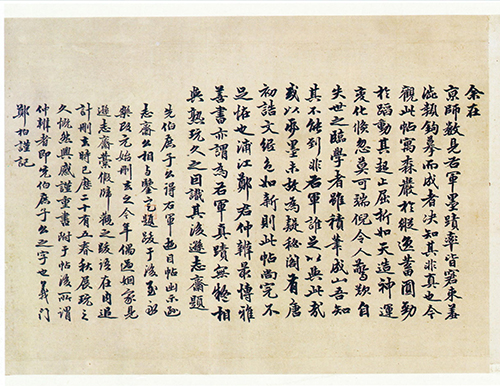 余在
京師數見右軍墨蹟率皆窘束羞
澁類鉤摹而成者决知其非真也今
觀此帖寓森嚴於縱逸蓄圓勁
於蹈動其起止屈折如天造神運
變化倏忽莫可端倪令人驚歎自
失世之臨學者雖積筆成山吾知
其不能到非右軍誰足以與此哉
或以爲墨未故爲疑秘閣有唐
初誥文絹色如新則此帖尚完不
足恠也浦江鄭君仲辨最博雅
善書亦謂爲右軍真蹟無疑相
與熟玩久之因識其後遜志齋題
先伯庶子公得右軍遊目帖出示遜
志齋公相與鑒定題跋于後至永
樂改元始刪去之今年偶過姻家見
遜志齋叢歸觀之跋語在內追
計刪去時已歷二十有五春秋展玩之
久慨然興感謹重書附于帖後所謂
仲辨者即先伯庶子公之字也義門
鄭柏謹記